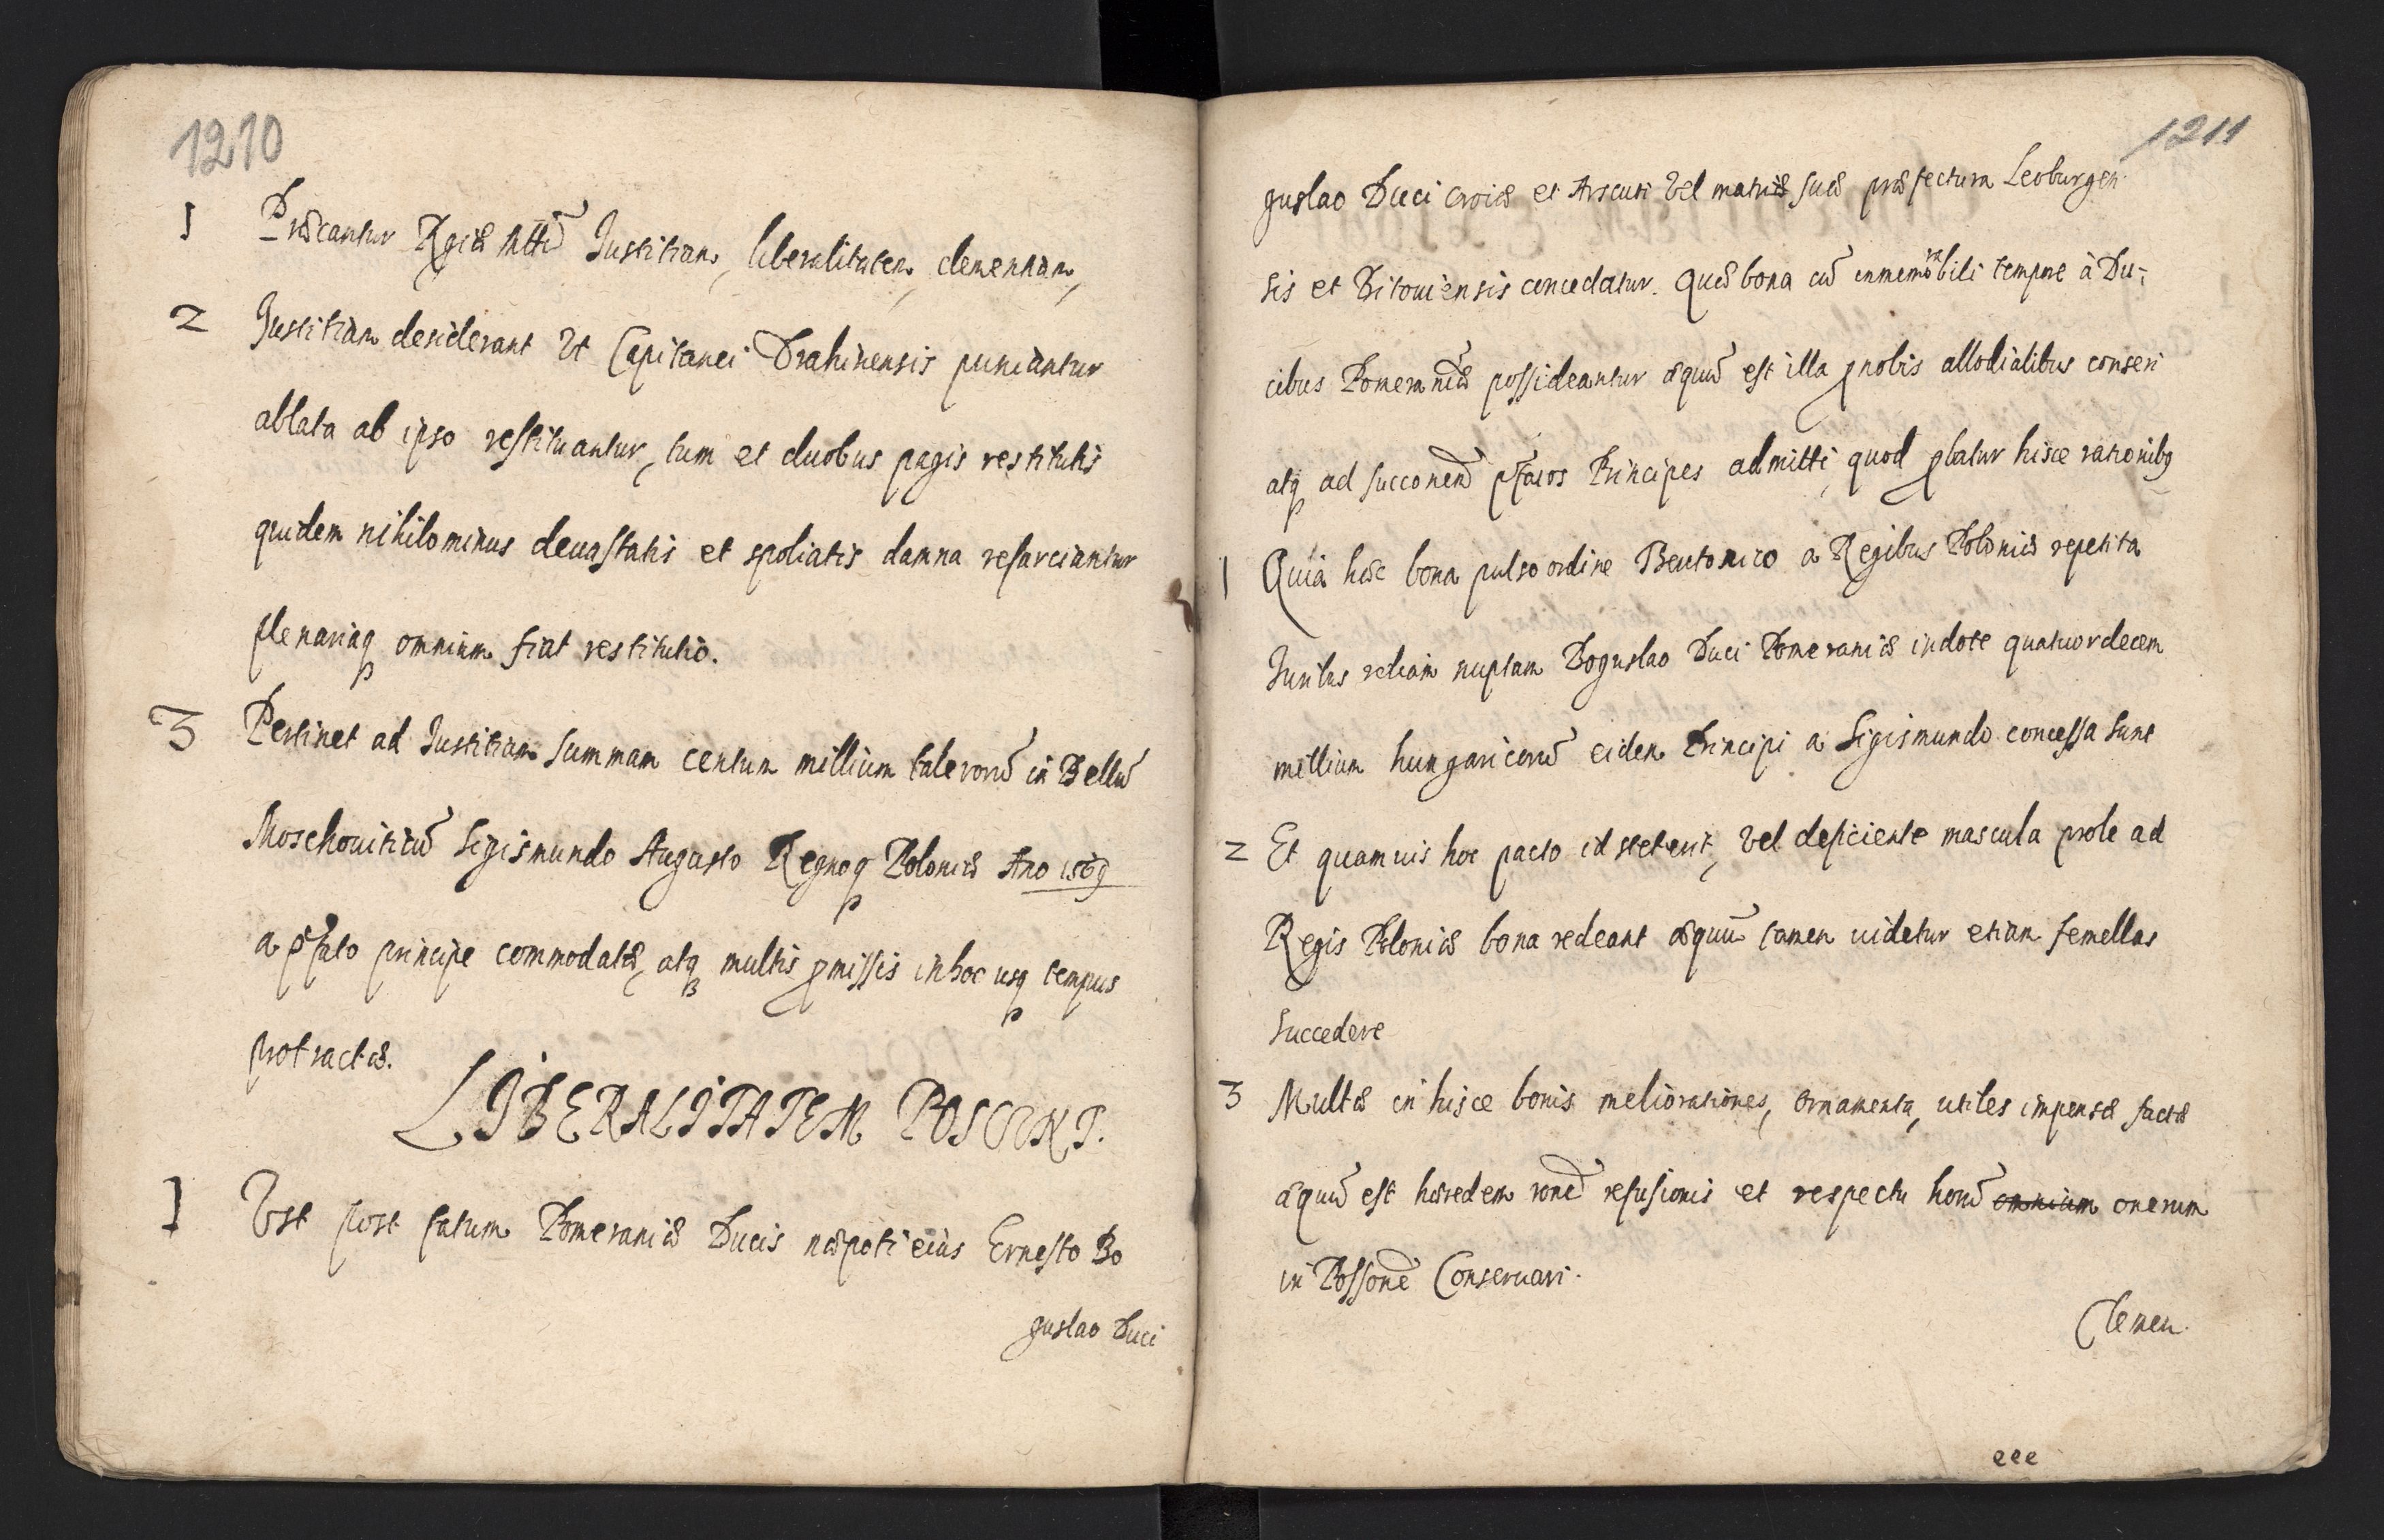 1210
1 Præcantur Rgiæ Mttē Justitiam, liberalitatem, clementiam,
2 Justitiam desiderant Vt Capitanei Drahinensis puniantur
ablata ab ipso restituantur, tum et duobus pagis restitutis
quidem nihilominus deuastatis et spoliatis damna resarciantur
plenariaqꝫ omnium fiat restitutio.
3 Pertinet ad Justitiam summam centum millium talerorū in Bellū
Moschouiticū Sigismundo Augusto Regnoqꝫ Poloniæ Ano 1569
a p̄fato principe commodatæ, atqꝫ multis ꝓmissis in hoc usqꝫ tempus
protractæ.
LIBERALITATEM POSCUNT.
1 Vst post fatum Pomeraniæ Ducis næpoti eius Ernesto Bo
guslao Duci
1211
guslao Duci Croiæ et Arscuti Vel matris suæ præfectura Leoburgen
sis et Bitouiensis concedatur. Quæ bona cū inmemorabili tempore à Du-
cibus Pomeraniæ possideantur æquū est illa ꝓ nobis allodialibus conseri
atqꝫ ad succonem̄ p̄fatos Principes admitti, quod ꝓbatur hisce rationibꝫ
1 Quia hæc bona pulso ordine Teutonico a Regibus Poloniæ repetita
Juritus reliam nuptam Boguslao Duci Pomeraniæ in dote quatuordecem
millium hungaricorū eidem Principi a Sigismundo concessa sunt
2 Et quamuis hoc pacto id steterit, Vel deficiente mascula prole ad
Regis Poloniæ bona redeant æquū tamen uidetur etiam femellas
succedere
3 Multæ in hisce bonis meliorationes, ornamenta, utiles impensæ factæ
æquū est hæredem ronē refusionis et respectu horū omnium onerum
in Possonē Conseruari.
Clemen.
eee